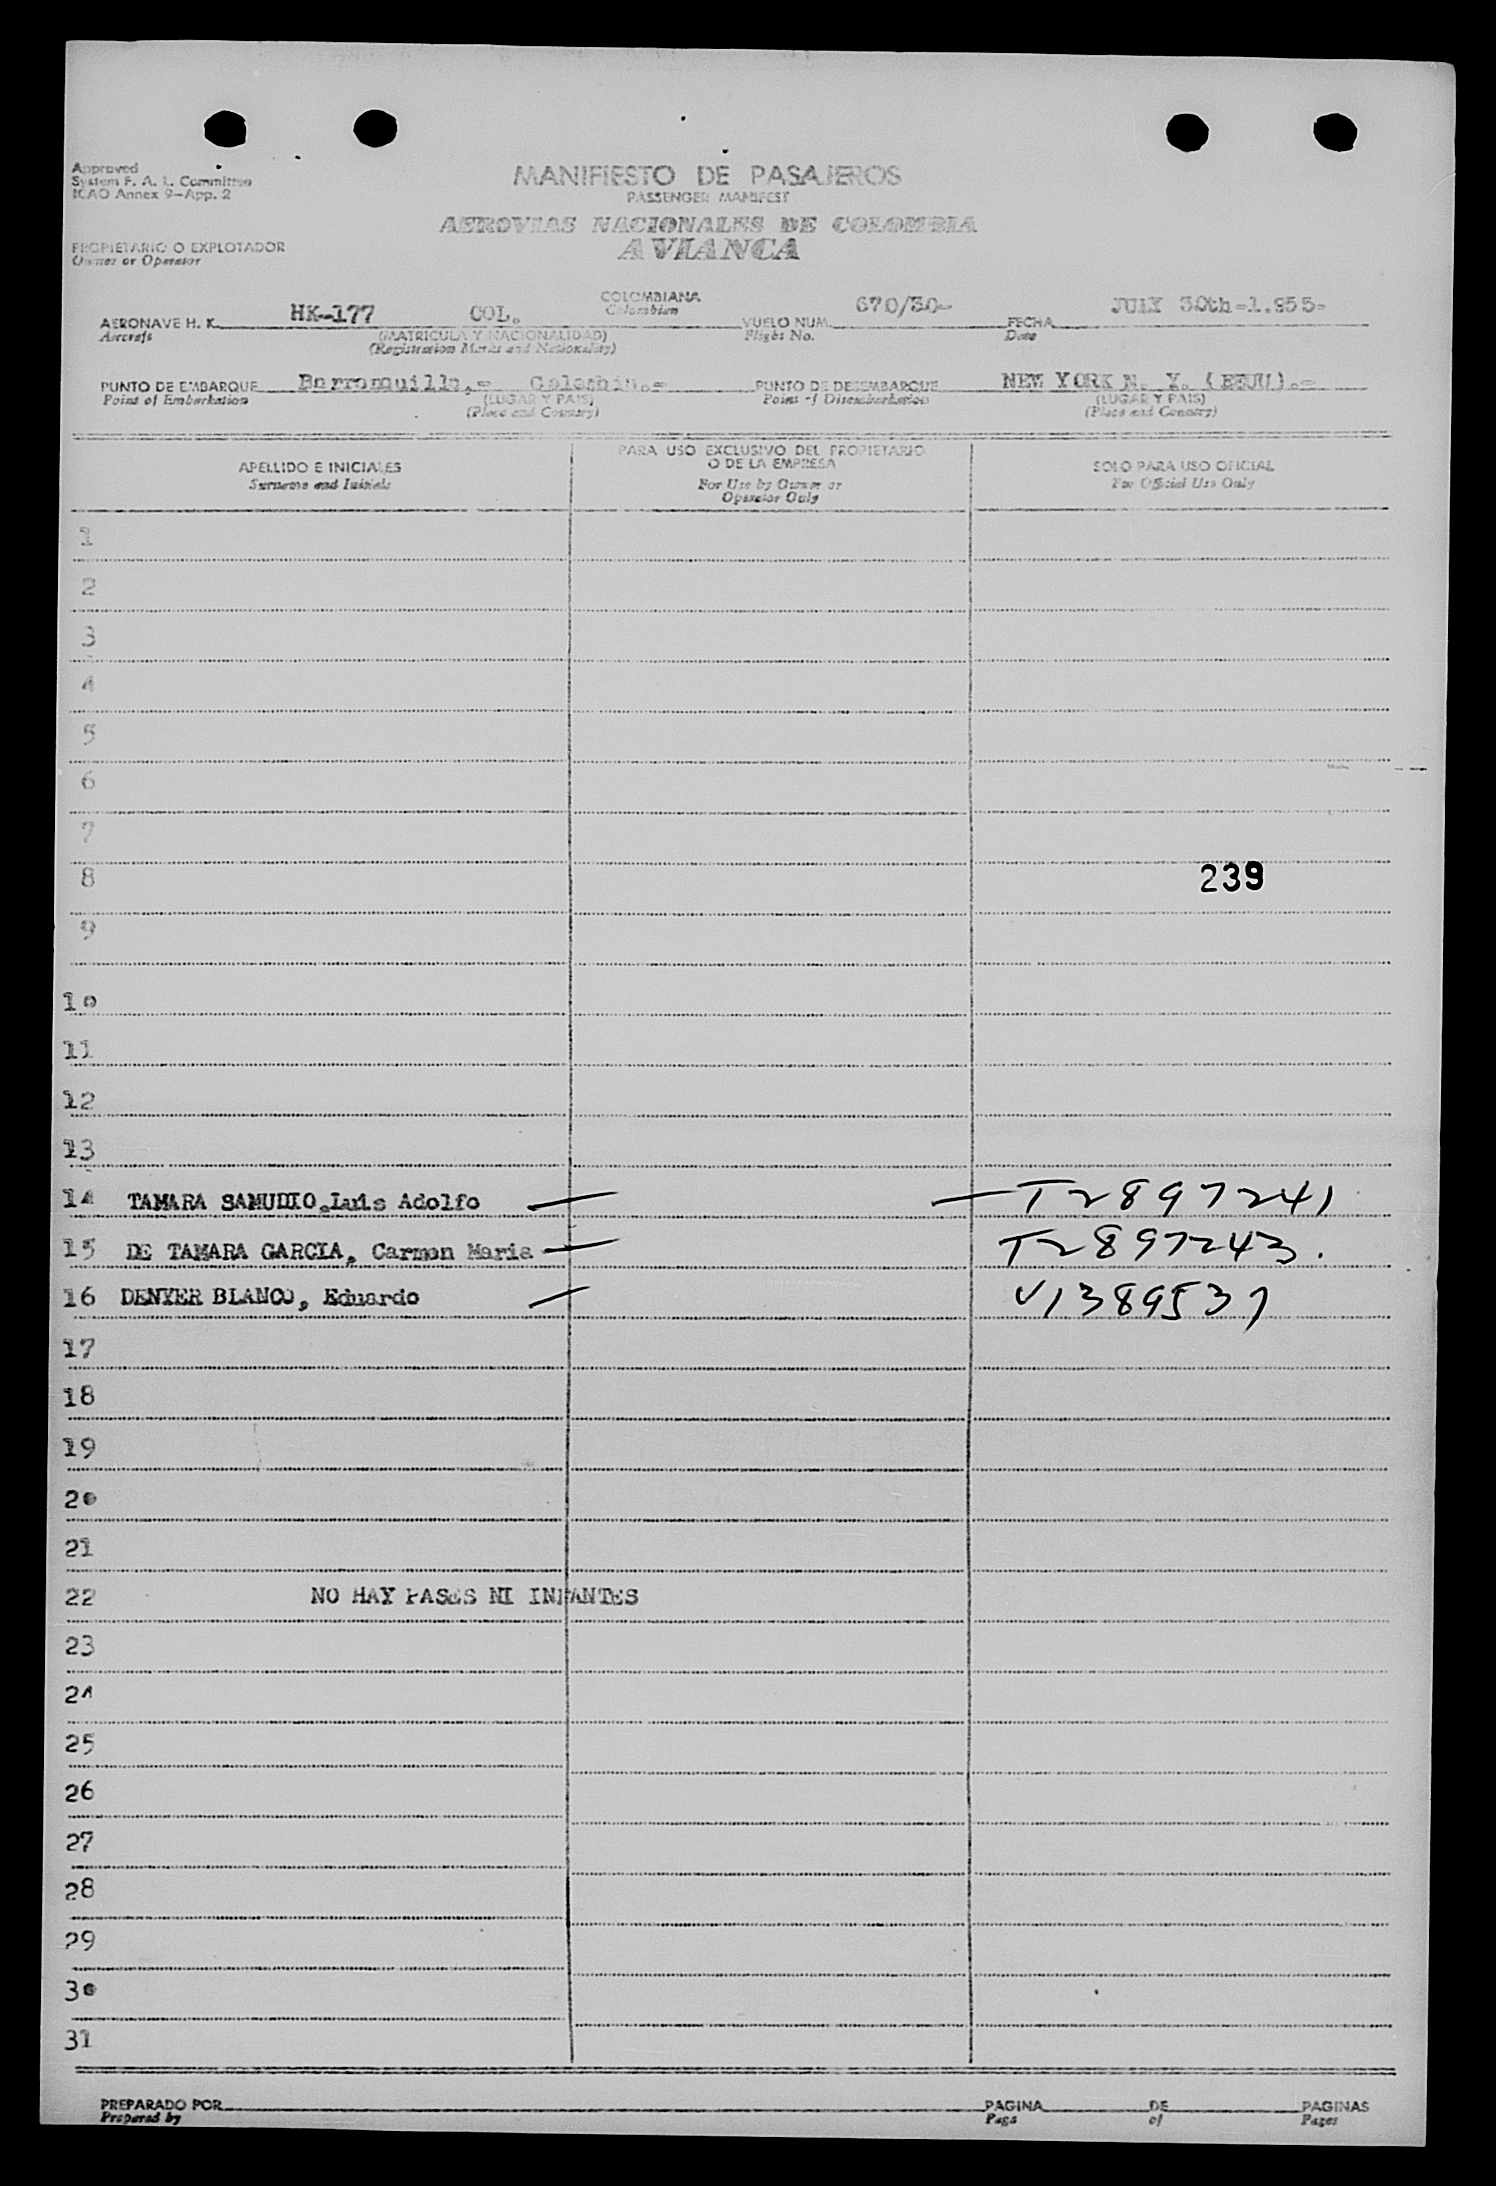 Approved
System F. A. L. Committee
ICAO Annex 9-App. 2
MANIFIESTO DE PASAJEROS
PASSENGER MANIFEST
AEROVIAS NACIONALES DE COLOMBIA
AVIANCA
PROPIETARIO O EXPLOTADOR
Owner or Operator
AERONAVE H. K. HK-177 COL. COLOMBIANA VUELO NUM. 670/30- FECHA JULY 30th-1.955-
Aircraft (MATRICULA Y NACIONALIDAD) Colombian Flight No. Date
(Registration Marks and Nationality)
PUNTO DE EMBARQUE Barranquilla,= Colombia.= PUNTO DE DESEMBARQUE NEW YORK N. Y. (EEUU).=
Point of Embarkation (LUGAR Y PAIS) Point of Disembarkation (LUGAR Y PAIS)
(Place and Country) (Place and Country)
APELLIDO E INICIALES
Surname and Initials
PARA USO EXCLUSIVO DEL PROPIETARIO
O DE LA EMPRESA
For Use by Owner or
Operator Only
SOLO PARA USO OFICIAL
For Official Use Only
1
2
3
4
5
6
7
8 239
9
10
11
12
13
14 TAMARA SAMUDIO,Luis Adolfo — — T2897241
15 DE TAMARA GARCIA, Carmen Maria — T2897243.
16 DENYER BLANCO, Eduardo — V1389537
17
18
19
20
21
22 NO HAY PASES NI INFANTES
23
24
25
26
27
28
29
30
31
PREPARADO POR PAGINA DE PAGINAS
Prepared by Page of Pages